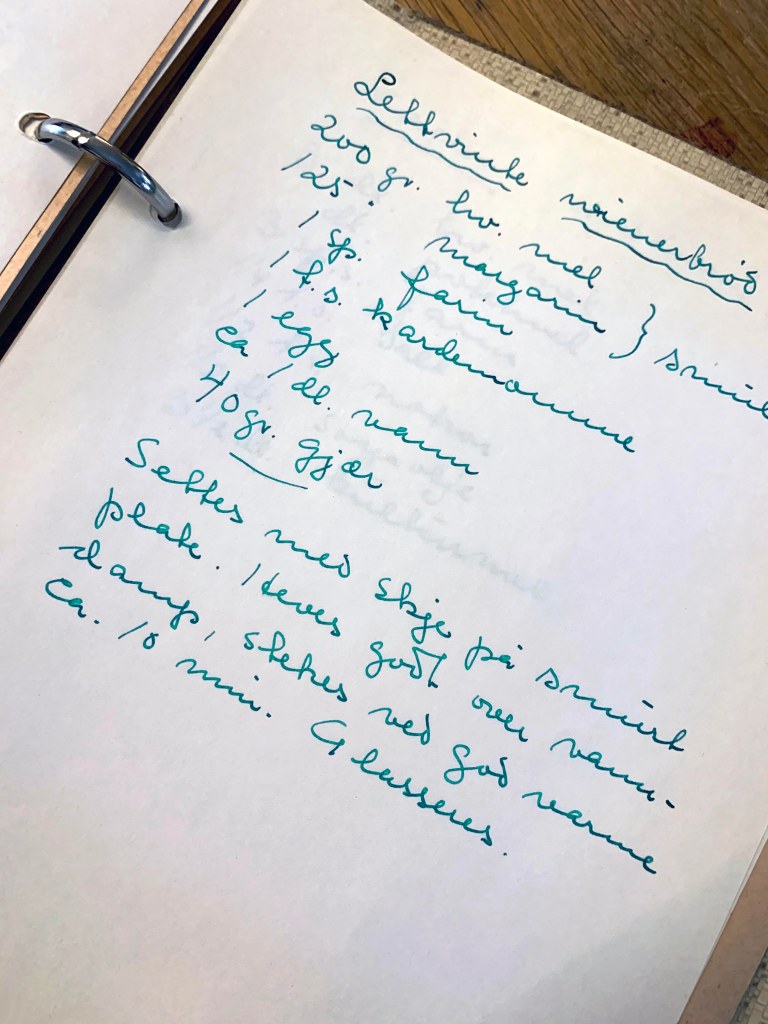 Lettvinte wienerbrød
200 gr. hv. mel
125 " margarin } smul
1 sp. farin
1 t.s. kardemomme
1 egg
ca 1 dl. vann
40 gr. gjær
Settes med skje på smurt
plate. Heves godt over vann-
damp, stekes ved god varme
ca. 10 min. Glasseres.